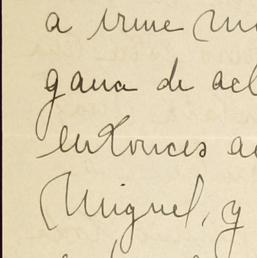 a irme
gana de acl
entonces a
Miguel, y